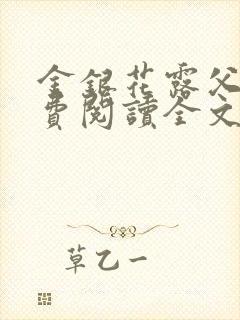 金銀花露父
費閱讀全文
草乙一